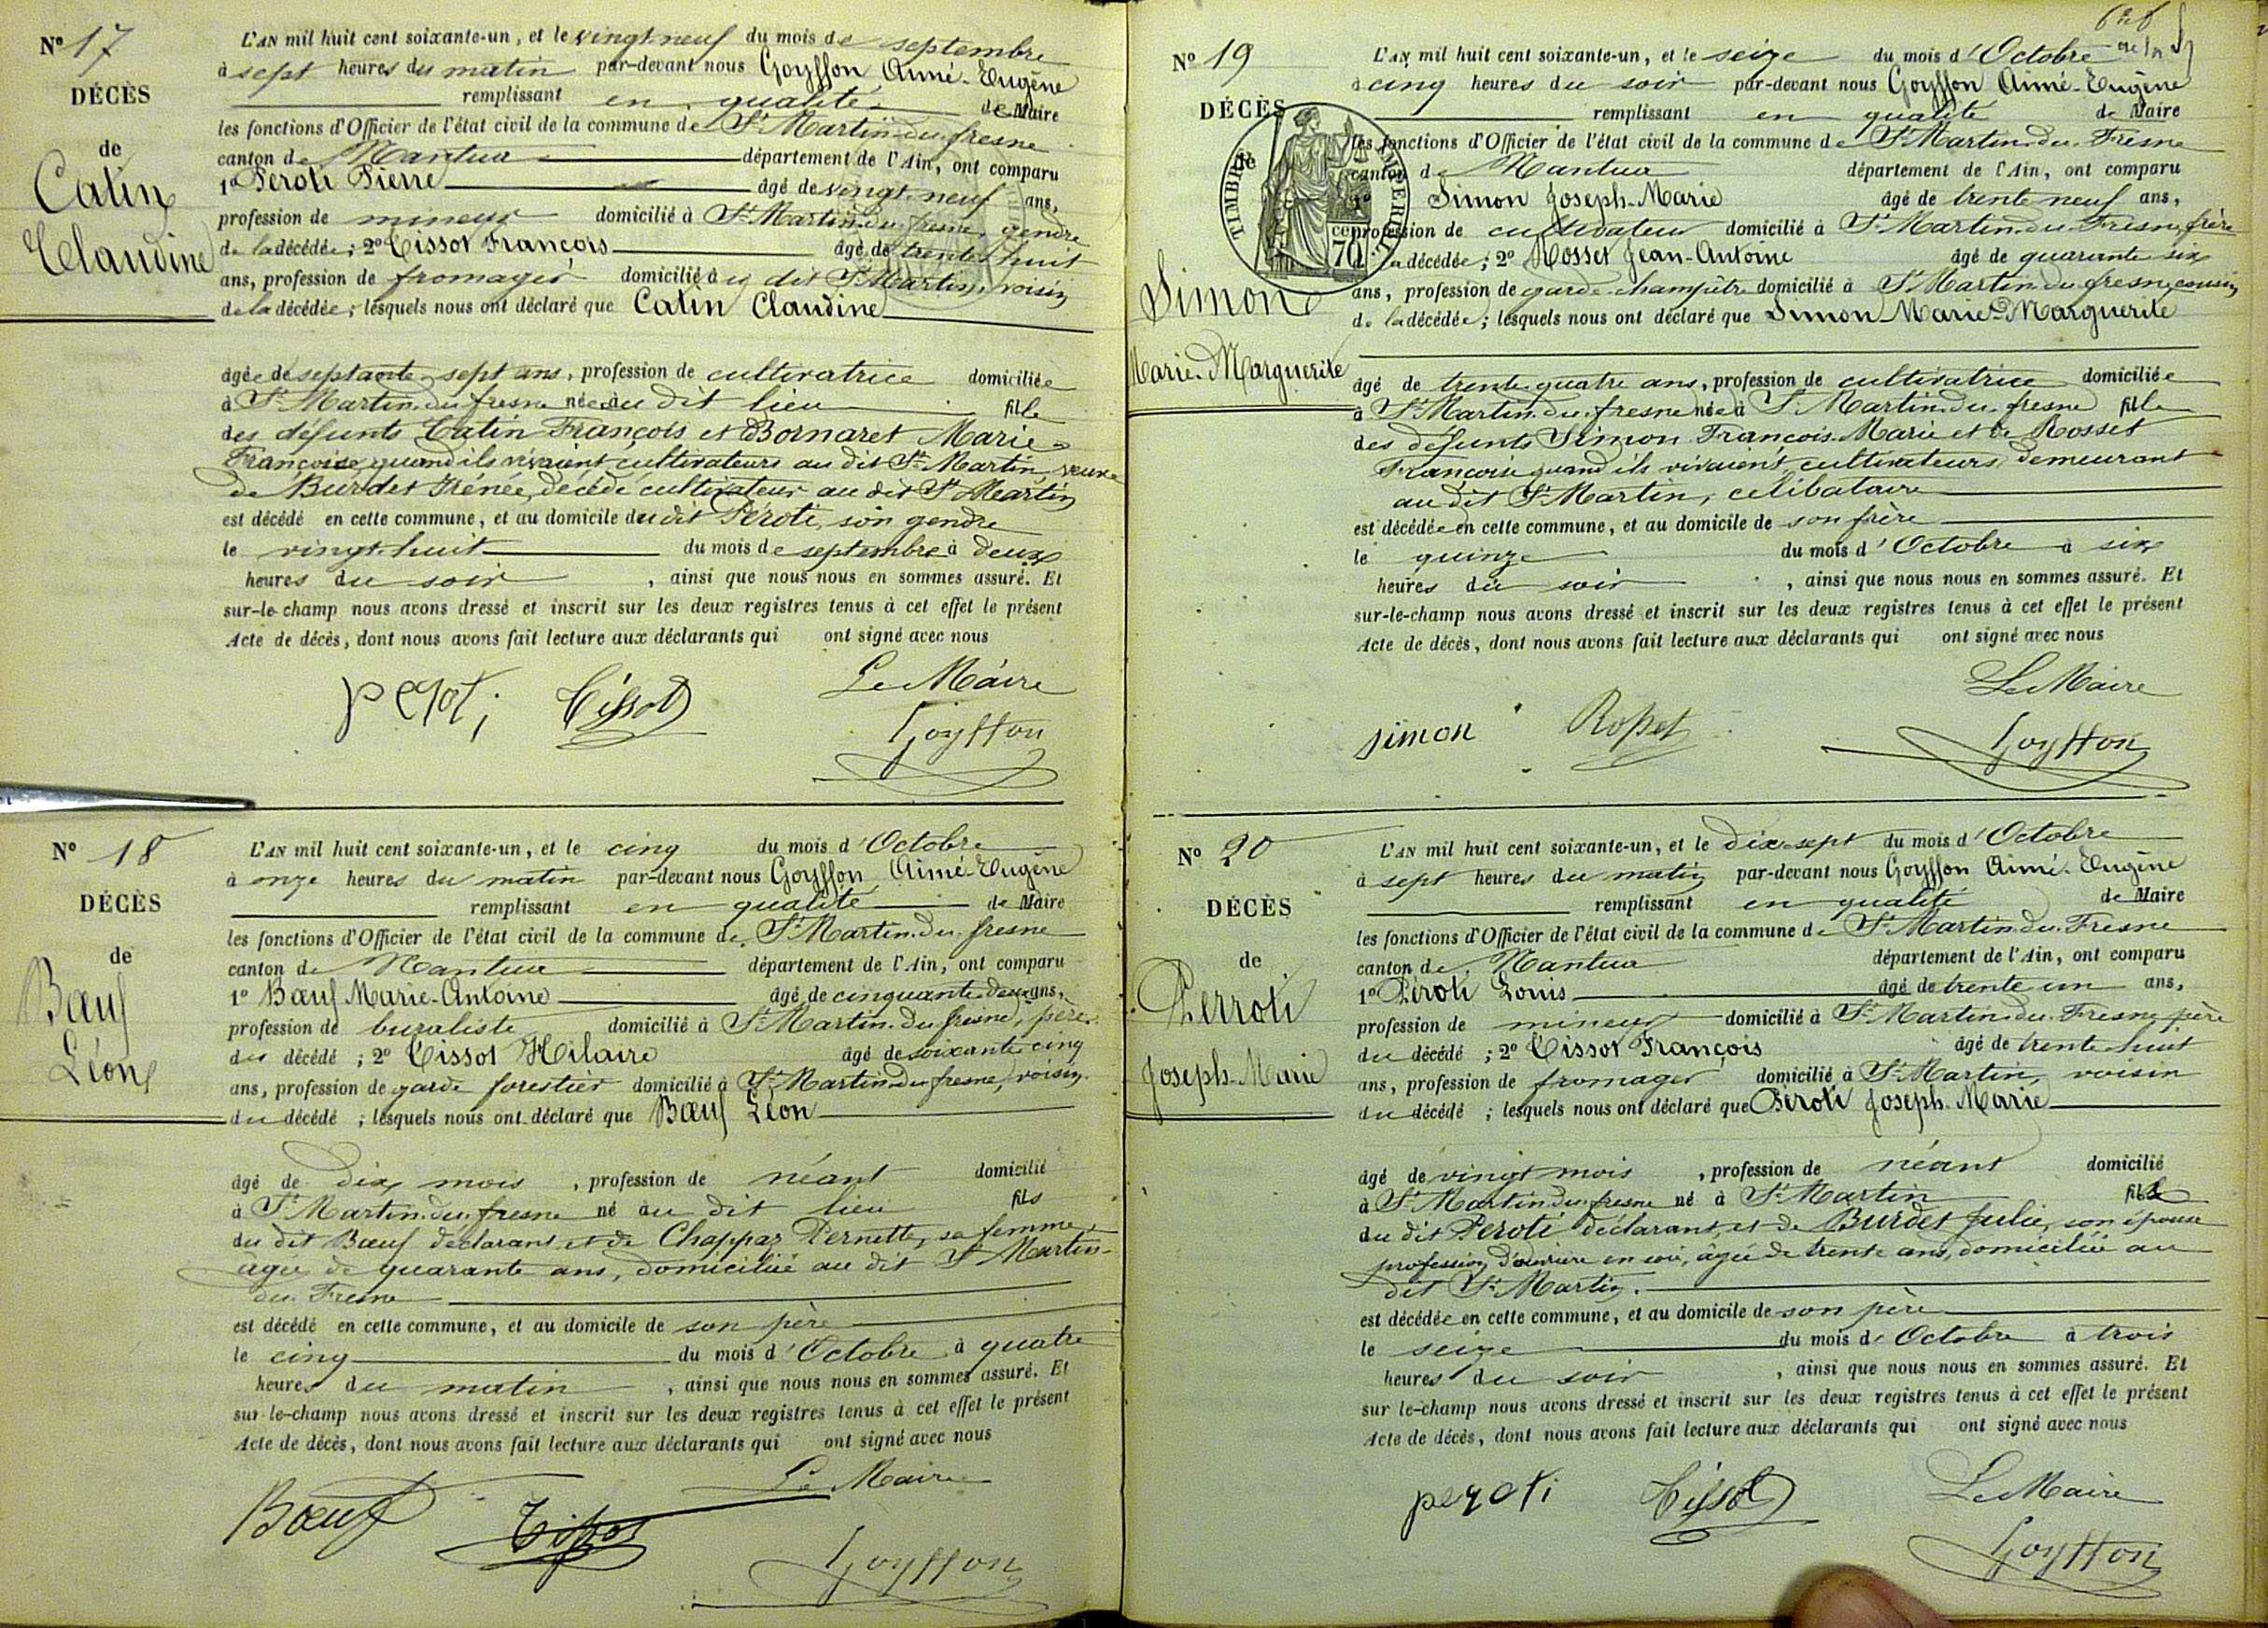 N° 17
DÉCÈS
de
Catin
Claudine
L'AN mil huit cent soixante-un, et le vingt-neuf du mois de septembre
à sept heures du matin par-devant nous Goyffon Aimé-Eugène
remplissant en qualité de Maire
les fonctions d'Officier de l'état civil de la commune de St Martin-du-fresne
canton de Nantua département de l'Ain, ont comparu
1° Peroti Pierre âgé de vingt-neuf ans,
profession de mineur domicilié à St Martin-du-fresne, gendre
de la décédée; 2° Tissot François âgé de trente-huit
ans, profession de fromager domicilié à dit St Martin, voisin
de la décédée; lesquels nous ont déclaré que Catin Claudine
âgée de septante-sept ans, profession de cultivatrice domiciliée
à St Martin-du-fresne née au dit lieu fille
des défunts Catin François et Bornaret Marie-
Françoise, quand ils vivaient cultivateurs au dit St Martin veuve
de Burdet Irénée, décédé cultivateur au dit St Martin
est décédé en cette commune, et au domicile du dit Péroti, son gendre
le vingt-huit du mois de septembre à deux
heures du soir, ainsi que nous nous en sommes assuré. Et
sur-le-champ nous avons dressé et inscrit sur les deux registres tenus à cet effet le présent
Acte de décès, dont nous avons fait lecture aux déclarants qui ont signé avec nous
Le Maire
peroti Tissot Goyffon
N° 18
DÉCÈS
de
Bœuf
Léon
L'AN mil huit cent soixante-un, et le cinq du mois d'Octobre
à onze heures du matin par-devant nous Goyffon Aimé-Eugène
remplissant en qualité de Maire
les fonctions d'Officier de l'état civil de la commune de St Martin-du-fresne
canton de Nantua département de l'Ain, ont comparu
1° Bœuf Marie-Antoine âgé de cinquante-deux ans,
profession de buraliste domicilié à St Martin-du-fresne, père
du décédé; 2° Tissot Hilaire âgé de soixante-cinq
ans, profession de garde forestier domicilié à St Martin-du-fresne, voisin
du décédé; lesquels nous ont déclaré que Bœuf Léon
âgé de dix mois, profession de néant domicilié
à St Martin-du-fresne né au dit lieu fils
du dit Bœuf déclarant et de Chappaz Pernette, sa femme,
âgée de quarante ans, domiciliée au dit St Martin-
du-Fresne
est décédé en cette commune, et au domicile de son père
le cinq du mois d'Octobre à quatre
heures du matin, ainsi que nous nous en sommes assuré. Et
sur-le-champ nous avons dressé et inscrit sur les deux registres tenus à cet effet le présent
Acte de décès, dont nous avons fait lecture aux déclarants qui ont signé avec nous
Le Maire
Bœuf Tissot Goyffon
N° 19
DÉCÈS
de
Simon
Marie-Marguerite
TIMBRE IMPÉRIAL
70
L'AN mil huit cent soixante-un, et le seize du mois d'Octobre
à cinq heures du soir par-devant nous Goyffon Aimé-Eugène
remplissant en qualité de Maire
les fonctions d'Officier de l'état civil de la commune de St Martin-du-Fresne
canton de Nantua département de l'Ain, ont comparu
1° Simon Joseph-Marie âgé de trente-neuf ans,
profession de cultivateur domicilié à St Martin-du-Fresne, frère
la décédée; 2° Rosset Jean-Antoine âgé de quarante-six
ans, profession de garde-champêtre domicilié à St Martin-du-fresne, cousin
de la décédée; lesquels nous ont déclaré que Simon Marie-Marguerite
âgé de trente-quatre ans, profession de cultivatrice domiciliée
à St Martin-du-fresne née à St Martin-du-fresne fille
des défunts Simon François-Marie et de Rosset
Françoise quand ils vivaient cultivateurs demeurant
au dit St Martin, célibataire
est décédée en cette commune, et au domicile de son frère
le quinze du mois d'Octobre à six
heures du soir, ainsi que nous nous en sommes assuré. Et
sur-le-champ nous avons dressé et inscrit sur les deux registres tenus à cet effet le présent
Acte de décès, dont nous avons fait lecture aux déclarants qui ont signé avec nous
Le Maire
simon Rosset Goyffon
N° 20
DÉCÈS
de
Perroti
Joseph-Marie
L'AN mil huit cent soixante-un, et le dix-sept du mois d'Octobre
à sept heures du matin par-devant nous Goyffon Aimé-Eugène
remplissant en qualité de Maire
les fonctions d'Officier de l'état civil de la commune de St Martin-du-Fresne
canton de Nantua département de l'Ain, ont comparu
1° Péroti Louis âgé de trente-un ans,
profession de mineur domicilié à St Martin-du-Fresne, père
du décédé; 2° Tissot François âgé de trente-huit
ans, profession de fromager domicilié à St Martin, voisin
du décédé; lesquels nous ont déclaré que Péroti Joseph-Marie
âgé de vingt mois, profession de néant domicilié
à St Martin-du-fresne né à St Martin fils
du dit Peroti déclarant, et de Burdet Julie, son épouse
profession d'ouvrière en soie, âgée de trente ans, domiciliée au
dit St Martin.
est décédée en cette commune, et au domicile de son père
le seize du mois d'Octobre à trois
heures du soir, ainsi que nous nous en sommes assuré. Et
sur-le-champ nous avons dressé et inscrit sur les deux registres tenus à cet effet le présent
Acte de décès, dont nous avons fait lecture aux déclarants qui ont signé avec nous
Le Maire
peroti Tissot Goyffon